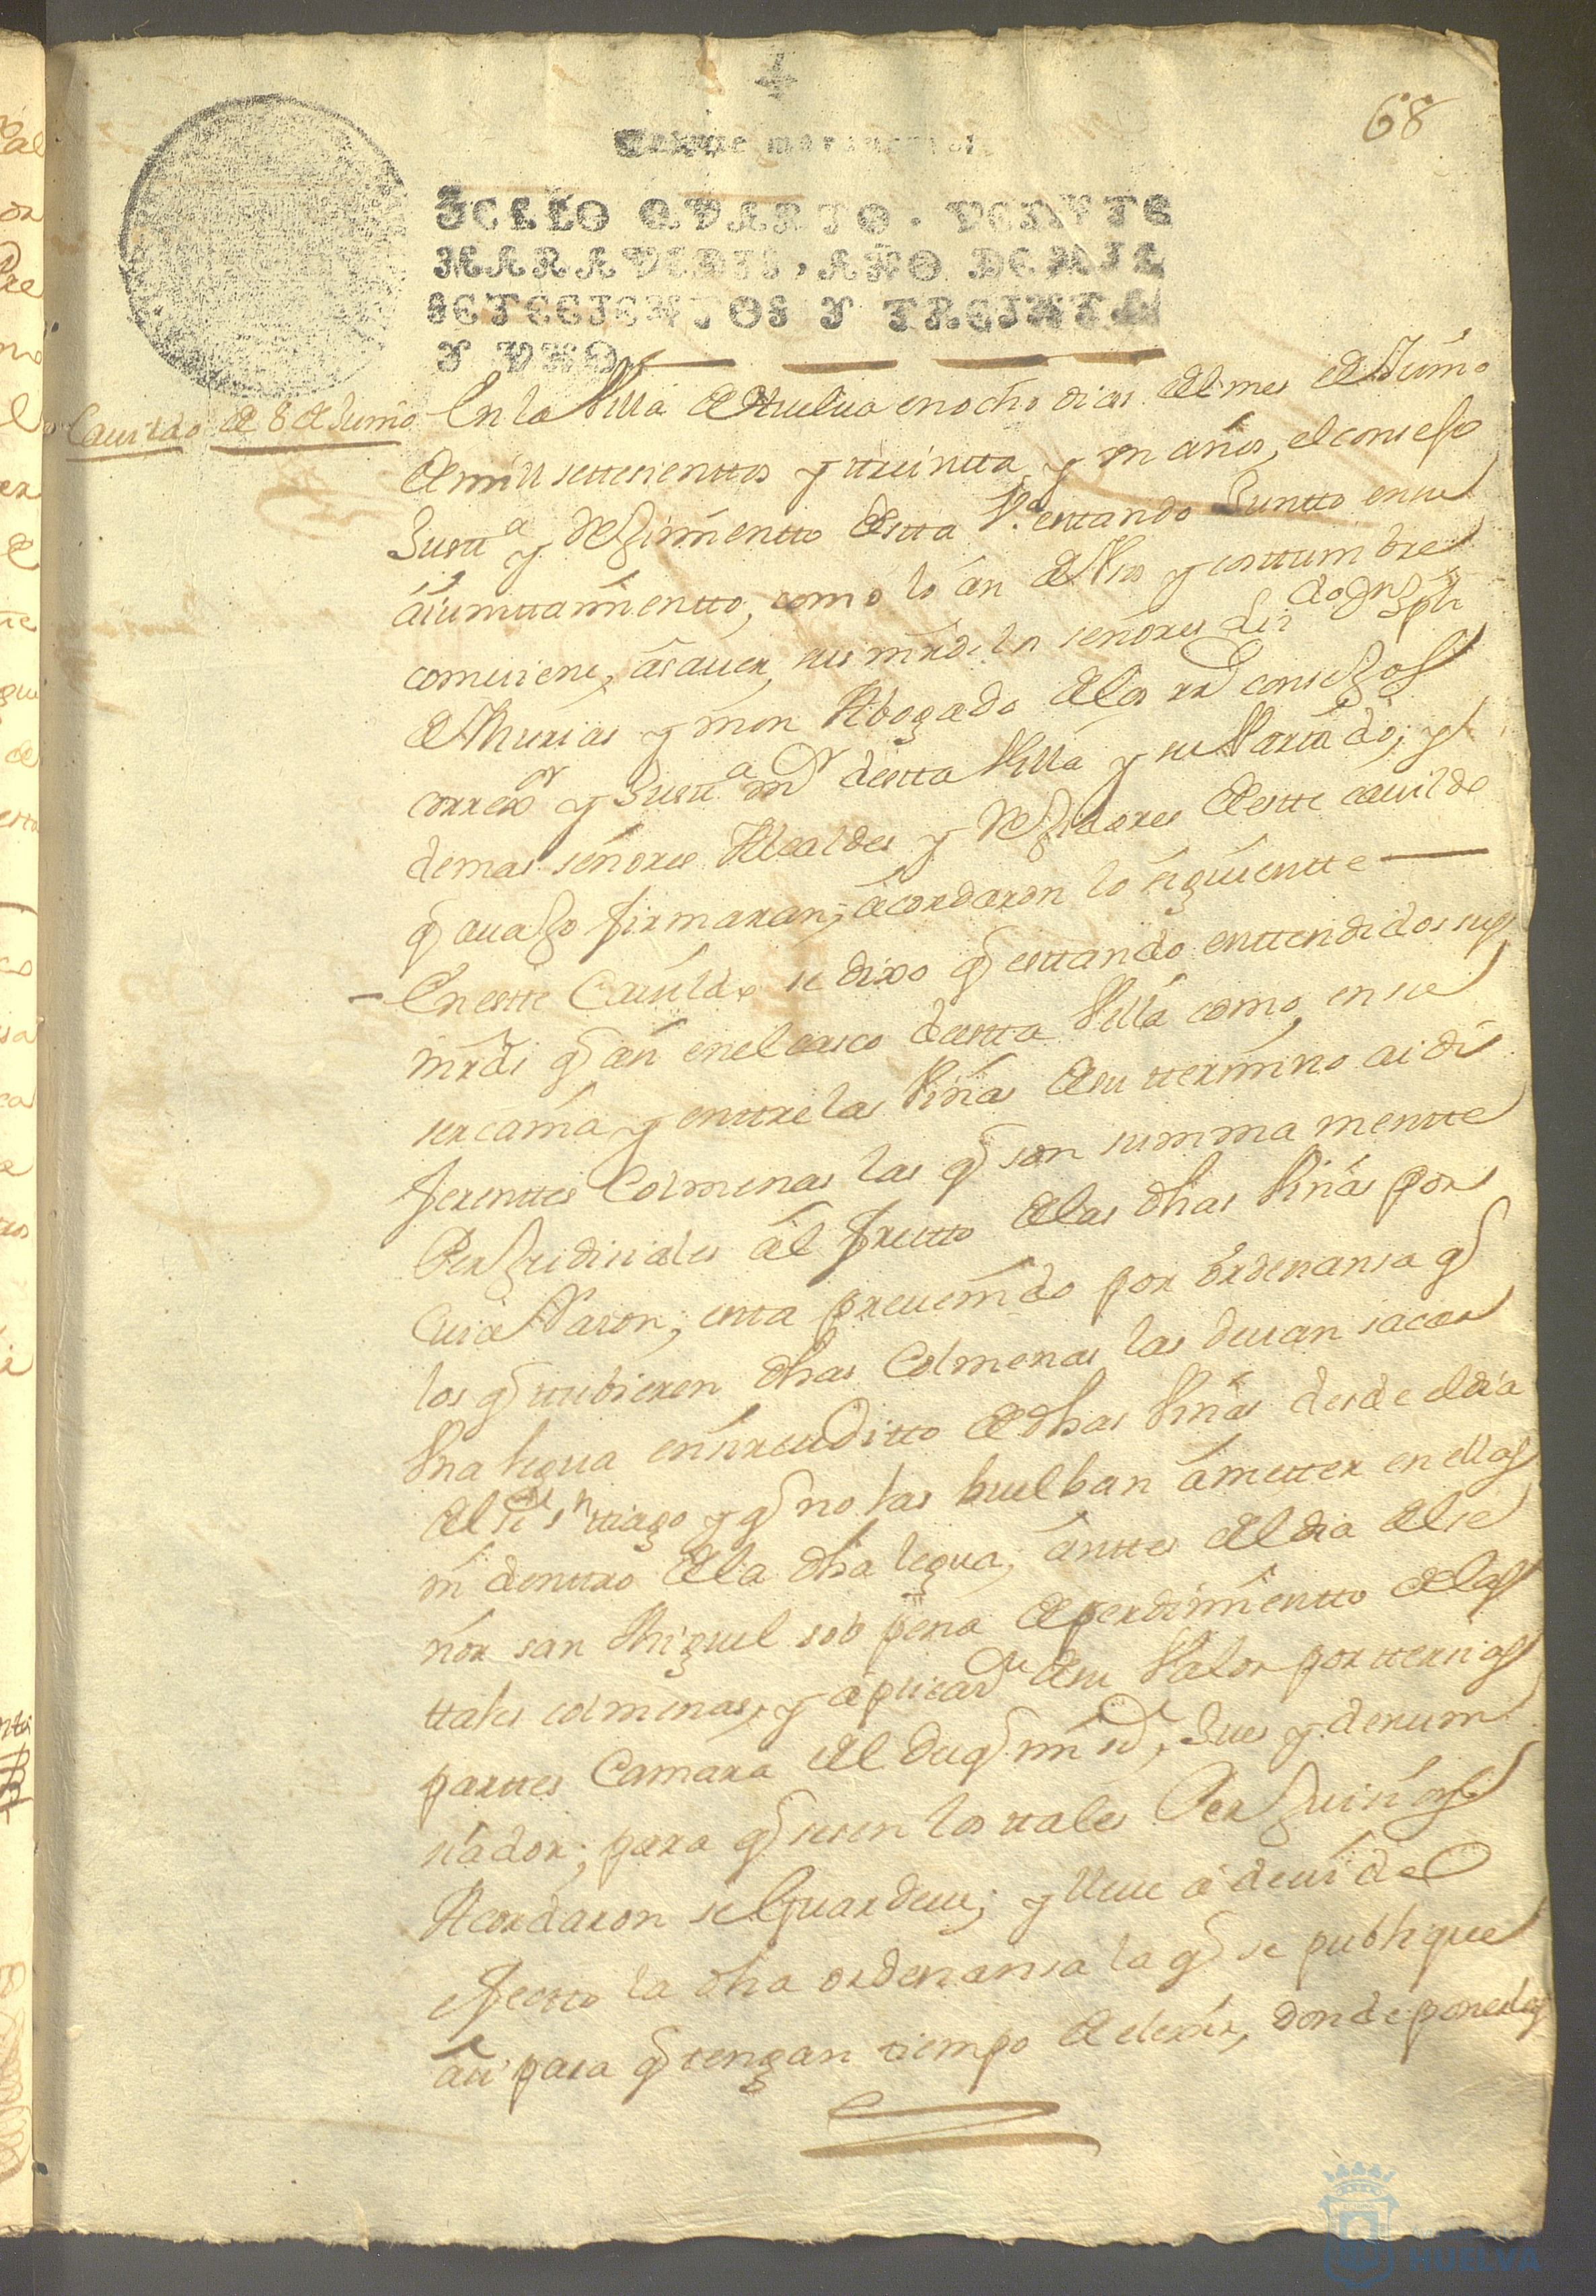 68
Veinte maravedis.
SELLO QVARTO. VEINTE
MARAVEDIS, AÑO DE MIL
SETECIENTOS Y TREINTA
Y VNO.
Cauildo de 8 de Junio
En la Villa de Huelua en ocho dias del mes de Junio
de mill settesienttos y ttreintta y un años, el consejo
Justt.ª y Rejimientto destta V.ª esttando Juntto en su
aiunttamientto, como lo an de Vso y costtumbre
comuiene, asauer, sus mrds. los señores Liz.do Dn Jph
de Murias y mon Abogado de los rs consejos
correx.or y Justt.ª m.r destta Villa y su Marido; y
demas señores Alcaldes y Rejidores deste cauildo
q auajo firmaran; acordaron lo siguientte
En estte Cauildo se dixo q esttando enttendidos sus
mrds q asi en el casco destta Villa como en su
sercania y enttre las Viñas de su ttermino ai di
ferenttes Colmenas las q son summa mentte
Perjudiciales al frutto de las dhas Viñas por
Cuia Rason; estta preuenido por ordenansa q
los q ttubieren dhas Colmenas las deuan sacar
Vna legua en sircuditto de dhas Viñas desde el dia
del s.r Sn ttiago y q no las buelban a metter en ellas
ni denttro de la dha legua, anttes del dia del se
ñor san Miguel sob pena de perdimientto de las
ttales colmenas, y aplicad. de su Valor por ttersias
parttes Camara del Duq mi s.r, Jues y denun
siador; para q sesen los ttales Perjuisios
Acordaron se Guarde; y lleue a deuido
efectto la dha ordenansa la q se publique
asi para q tengan tiempo de elexir, donde ponerlas
HUELVA